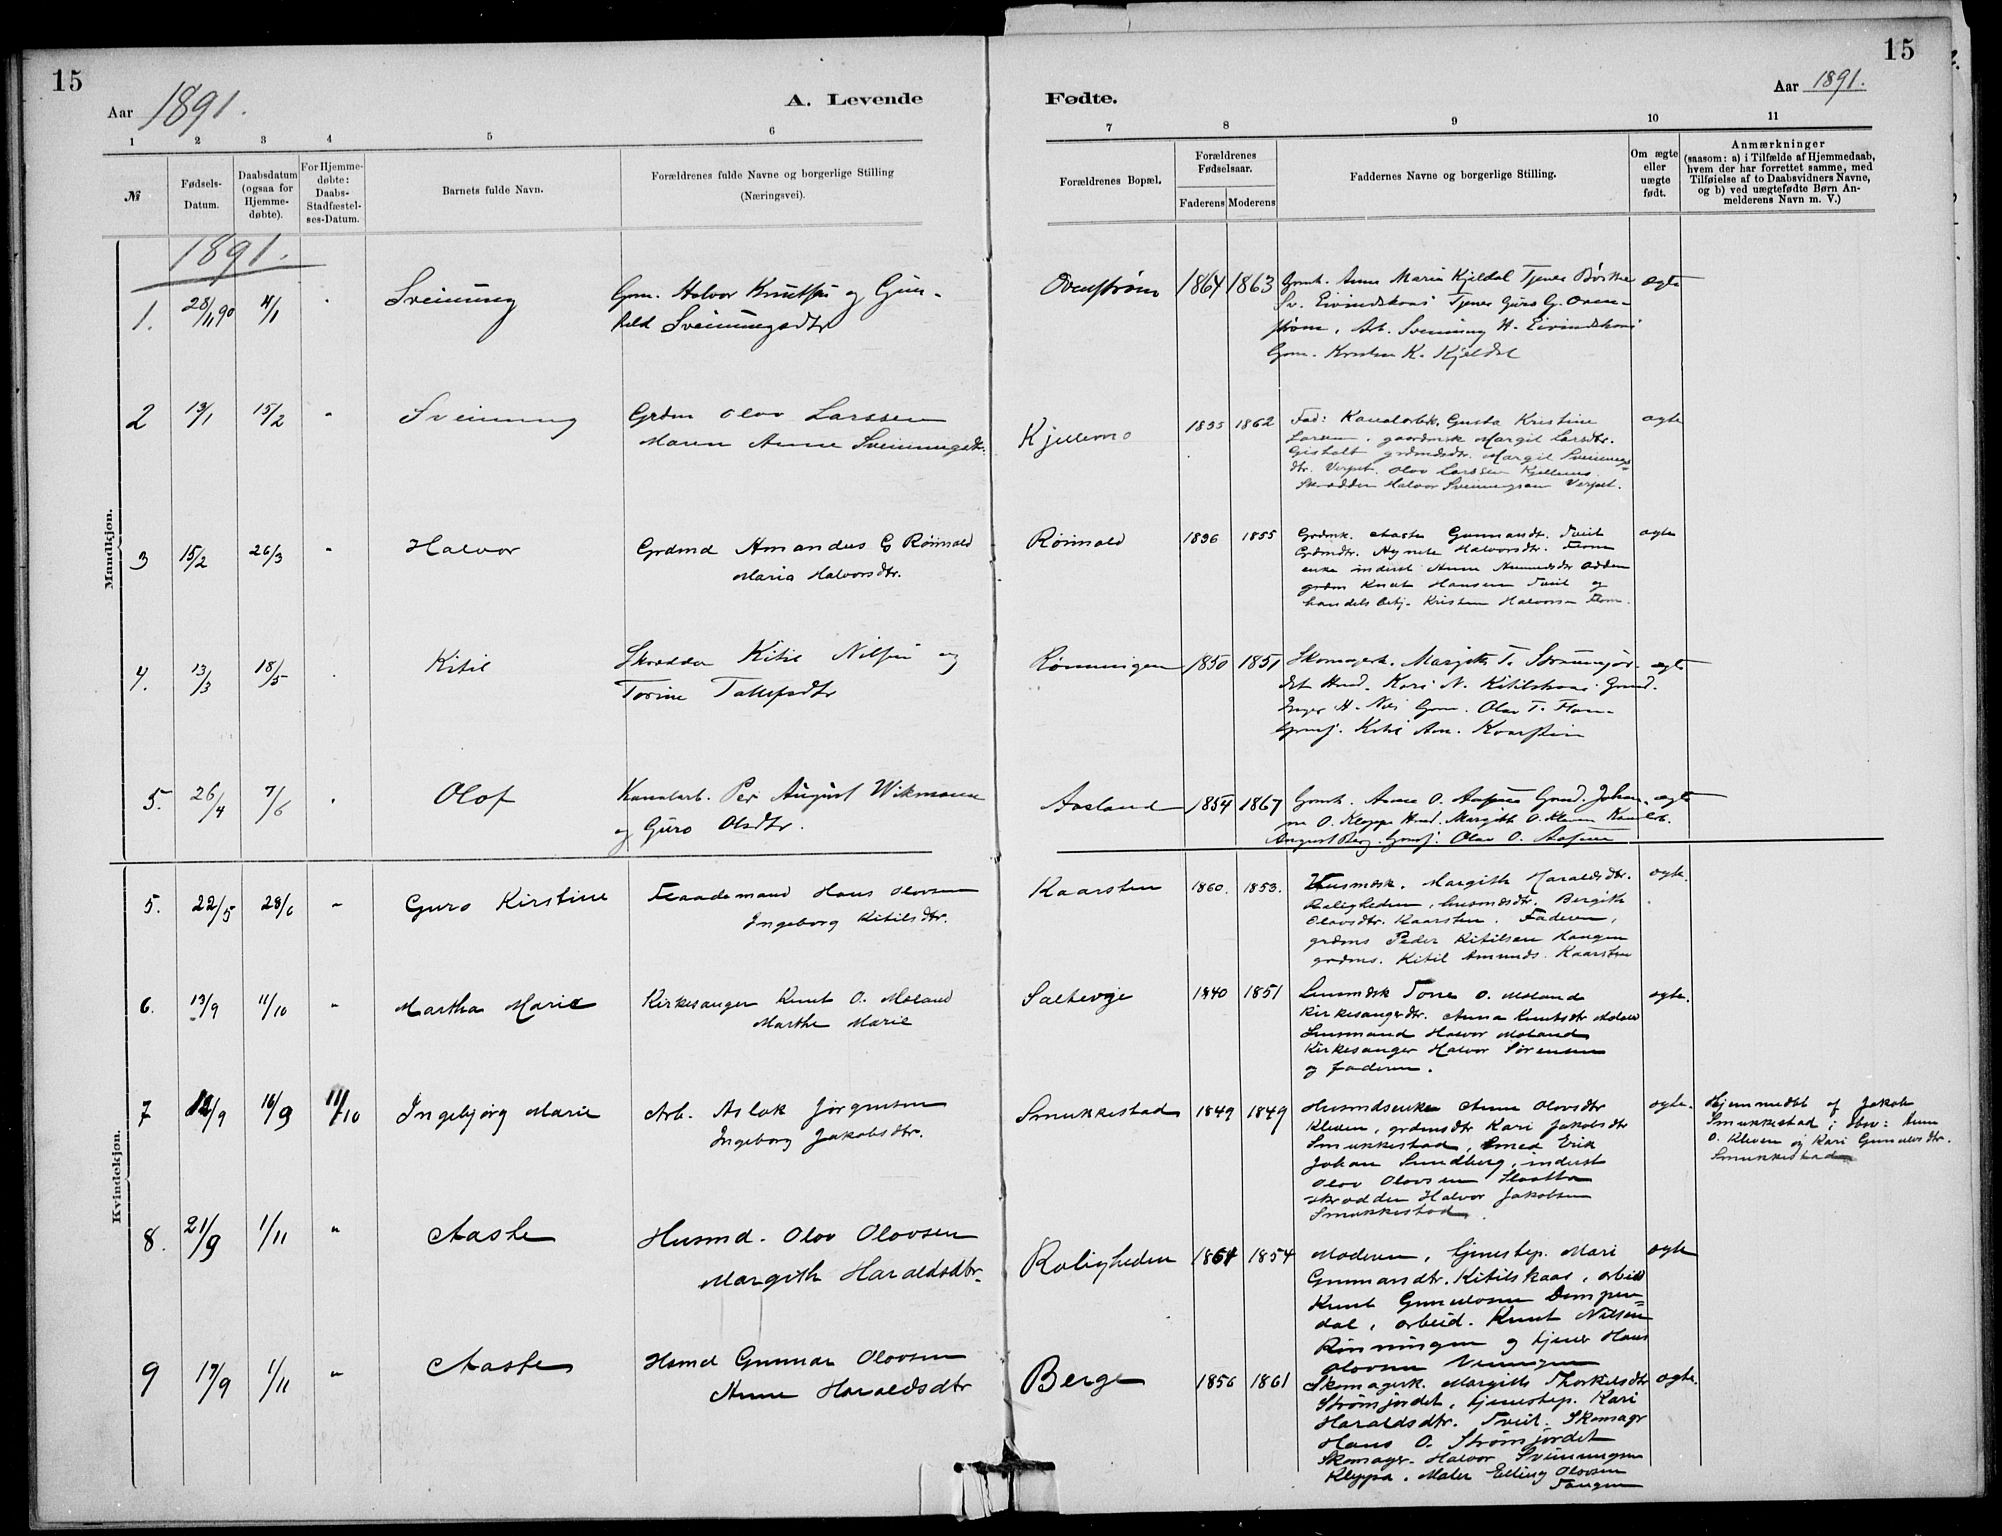 15
15
Aar 1891.
A. Levende
Fødte.
Aar 1891.
1 2 3 4 5 6 7 8 9 10 11
№
Fødsels-Datum.
Daabsdatum (ogsaa for Hjemme-døbte).
For Hjemme-døbte: Daabs-Stadfæstel-ses-Datum.
Barnets fulde Navn.
Forældrenes fulde Navne og borgerlige Stilling
(Næringsvei).
Forældrenes Bopæl.
Forældrenes Fødselsaar.
Faderens Moderens
Faddernes Navne og borgerlige Stilling.
Om ægte eller uægte født.
Anmærkninger
(saasom: a) i Tilfælde af Hjemmedaab,
hvem der har forrettet samme, med
Tilføielse af to Daabsvidners Navne,
og b) ved uægtefødte Børn An-
melderens Navn m. V.)
Mandkjøn.
1891.
1. 28/11 90 4/1 Sveinung
Gm. Halvor Knutsen og Gun-
hild Sveinungsdtr
Ovenstrøm 1864 1863
Gmk. Anne Maria Kjeldal Tjener
Sv. Eivindskaas Tjener Guro G. Oven-
strøm, Arb. Sveinung H. Eivindskaas
Gm. Kristen K. Kjeldal
ægte
2 13/1 15/2 " Sveinung
Grdm Olav Larssen
Maren Anne Sveinungsdtr.
Kjellemo 1835 1862
Fad: Kanalarbk. Gusta Kristine
Larsen, gaardmsk Margit Larsdtr.
grdmdsdtr. Margit Sveinungs=
dtr. Verpet. Olav Larssen Kjellemo
Skrædder Halvor Sveinungsen Verpet.
ægte
3 15/2 26/3 " Halvor
Grdmd Amandus G Rømnald
Maria Halvorsdtr.
Rømnald 1836 1855
Grdmk. Aaste Gunnarsdtr. Tveit
Grdmdtr. Agnete Halvorsdtr. Flom
enke inderst Anne Amundsdtr Odden
grdm Knut Hansen Tveit og
handelsbetj. Kristen Halvorsen Flom.
ægte
4. 13/3 18/5 Kitil
Skrædder Kitil Nilsen og
Torine Tallefsdtr
Rønningen 1850 1851
Skomagerk. Margith T. Strømsjor-
det Hmd. Kari N. Kitilskaas Gmd.
Inger H. Gm. Olav T. Flom
Gmsf. Kitil Am. Kaarstein
ægte
5. 26/4 7/6 Olof
Kanalarb. Per August Wikmann
og Guro Olsdtr.
Aasland 1854 1867
Gmk. Anne O. Gmd. Johan-
ne O. Kleppe Hmd. Margith O. Kleven
August Berg. Gmsf. Olav O.
ægte
Kvindekjøn.
5. 22/5 28/6 " Guro Kirstine
Flaademand Hans Olovsen
Ingeborg Kitilsdtr.
Kaarsten 1860. 1853.
Husmdsk. Margith Haraldsdtr.
Roligheden, husmdsdtr. Bergith
Olovsdtr. Kaarsten. Faderen,
grdms Peder Kitilsen Haugen
grdms. Kitil Amunds. Kaarsten
ægte.
6. 13/9 11/10 " Martha Marie
Kirkesanger Knut O. Moland
Marthe Marie
Saltevje 1840 1851
Lensmdsk Tone O. Moland
Kirkesangerdtr. Anna Knutsdtr Moland
Lensmand Halvor Moland
Kirkesanger Halvor Sørensen
og faderen.
ægte.
7 12/9 16/9 11/10 Ingebjørg Marie
Arb. Aslak Jørgensen
Ingeborg Jakobsdtr.
Smukkestad 1849 1849
Husmdsenke Anne Olovsdtr
Kleven, grdmsdtr Kari Jakobsdtr
Smukkestad, Smed Erik
Johan Sundberg, inderst
Olov Olovsen Slaatta
skrædder Halvor Jakobsen
Smukkestad.
ægte.
Hjemmedbt af Jakob
Smukkestad i Obs: Anne
O. Kleven og Kari Gunulvsdtr.
Smukkestad
8. 21/9 1/11 " Aaste
Husmd. Olov Olovsen
Margith Haraldsdtr.
Roligheden 1864 1854
Moderen, tjenestep. Mari
Gunnarsdtr. Kitilskaas, arbeid
Knut Gunulvsen Dampen=
dal, arbeid. Knut Nilsen
Rønningen og tjener Hans
Olovsen
ægte
9 17/9 1/11 " Aaste
Hsmd Gunnar Olovsen
Anne Haraldsdtr
Berge 1856 1861
Skomagerk. Margith Thorkelsdtr
Strømsjordet, tjenestep. Kari
Haraldsdtr. Tveit. Skomagr
Hans O. Strømsjordet
Skomager. Halvor Sveinungsen
Kleppa, Maler Elling Olovsen
Tangen
ægte.